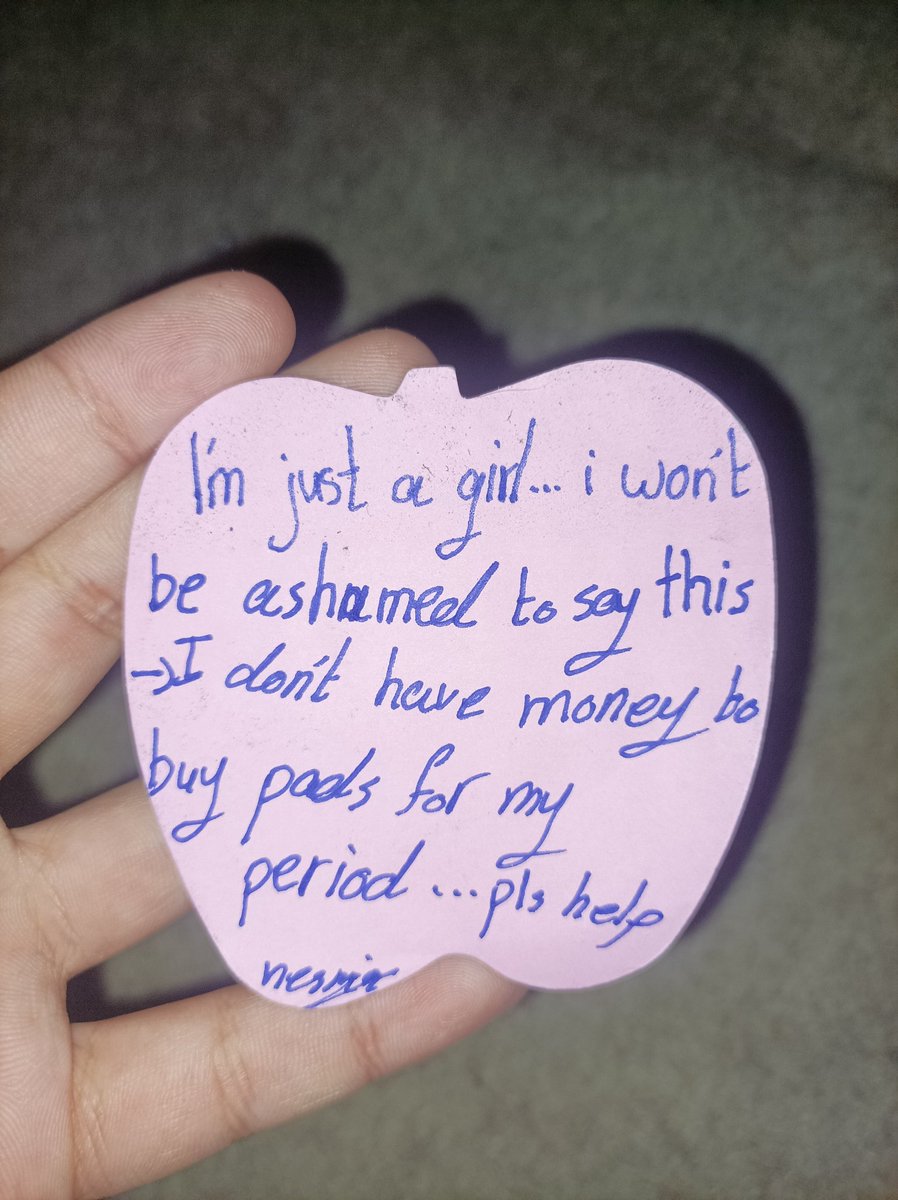 I'm just a girl... i won't
be ashamed to say this
→I don't have money to
buy pads for my
period ... pls help